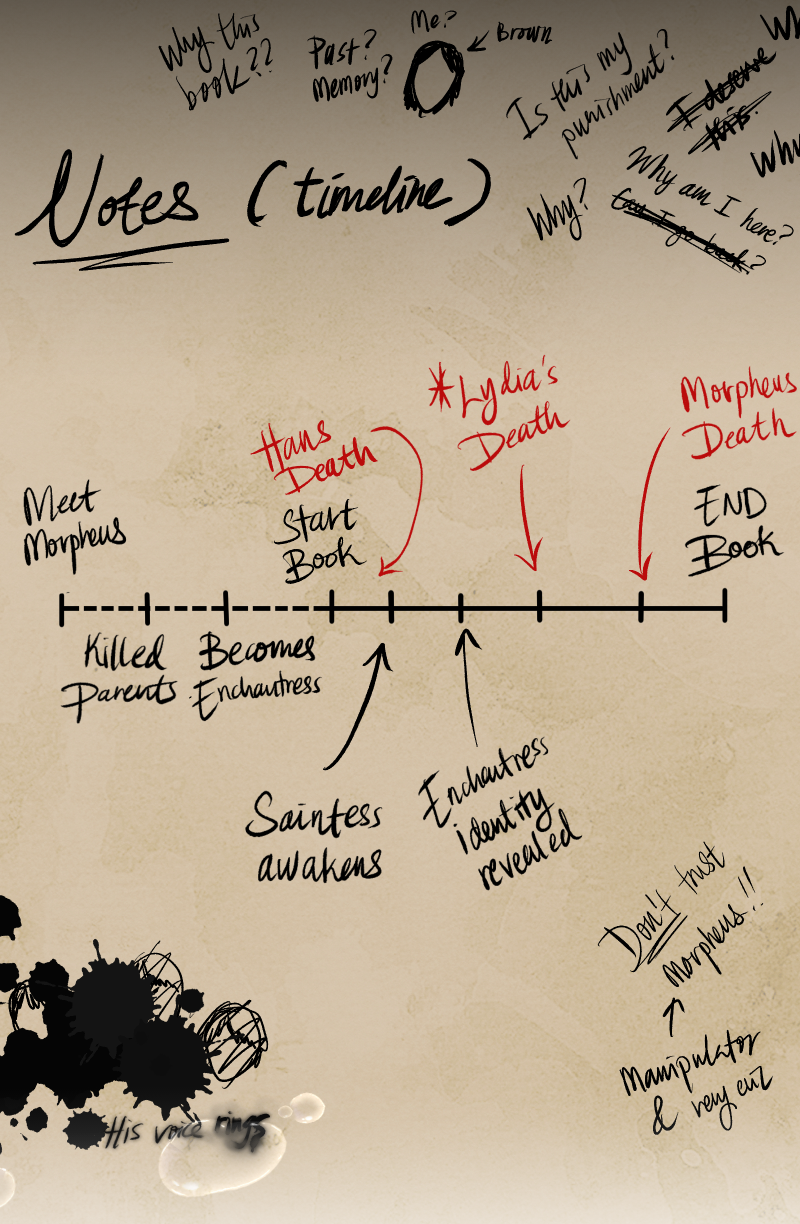 Why this
book??
Past?
Memory?
Me?
Brown
Is this my
punishment?
I deserve
this.
Why?
Why am I here?
Can I go back?
Notes (timeline)
Hans
Death
*Lydia's
Death
Morpheus
Death
Meet
Morpheus
Start
Book
END
Book
Killed
Parents
Becomes
Enchantress
Saintess
awakens
Enchantress
identity
revealed
Don't trust
Morpheus!!
Manipulator
& very evil
His voice rings